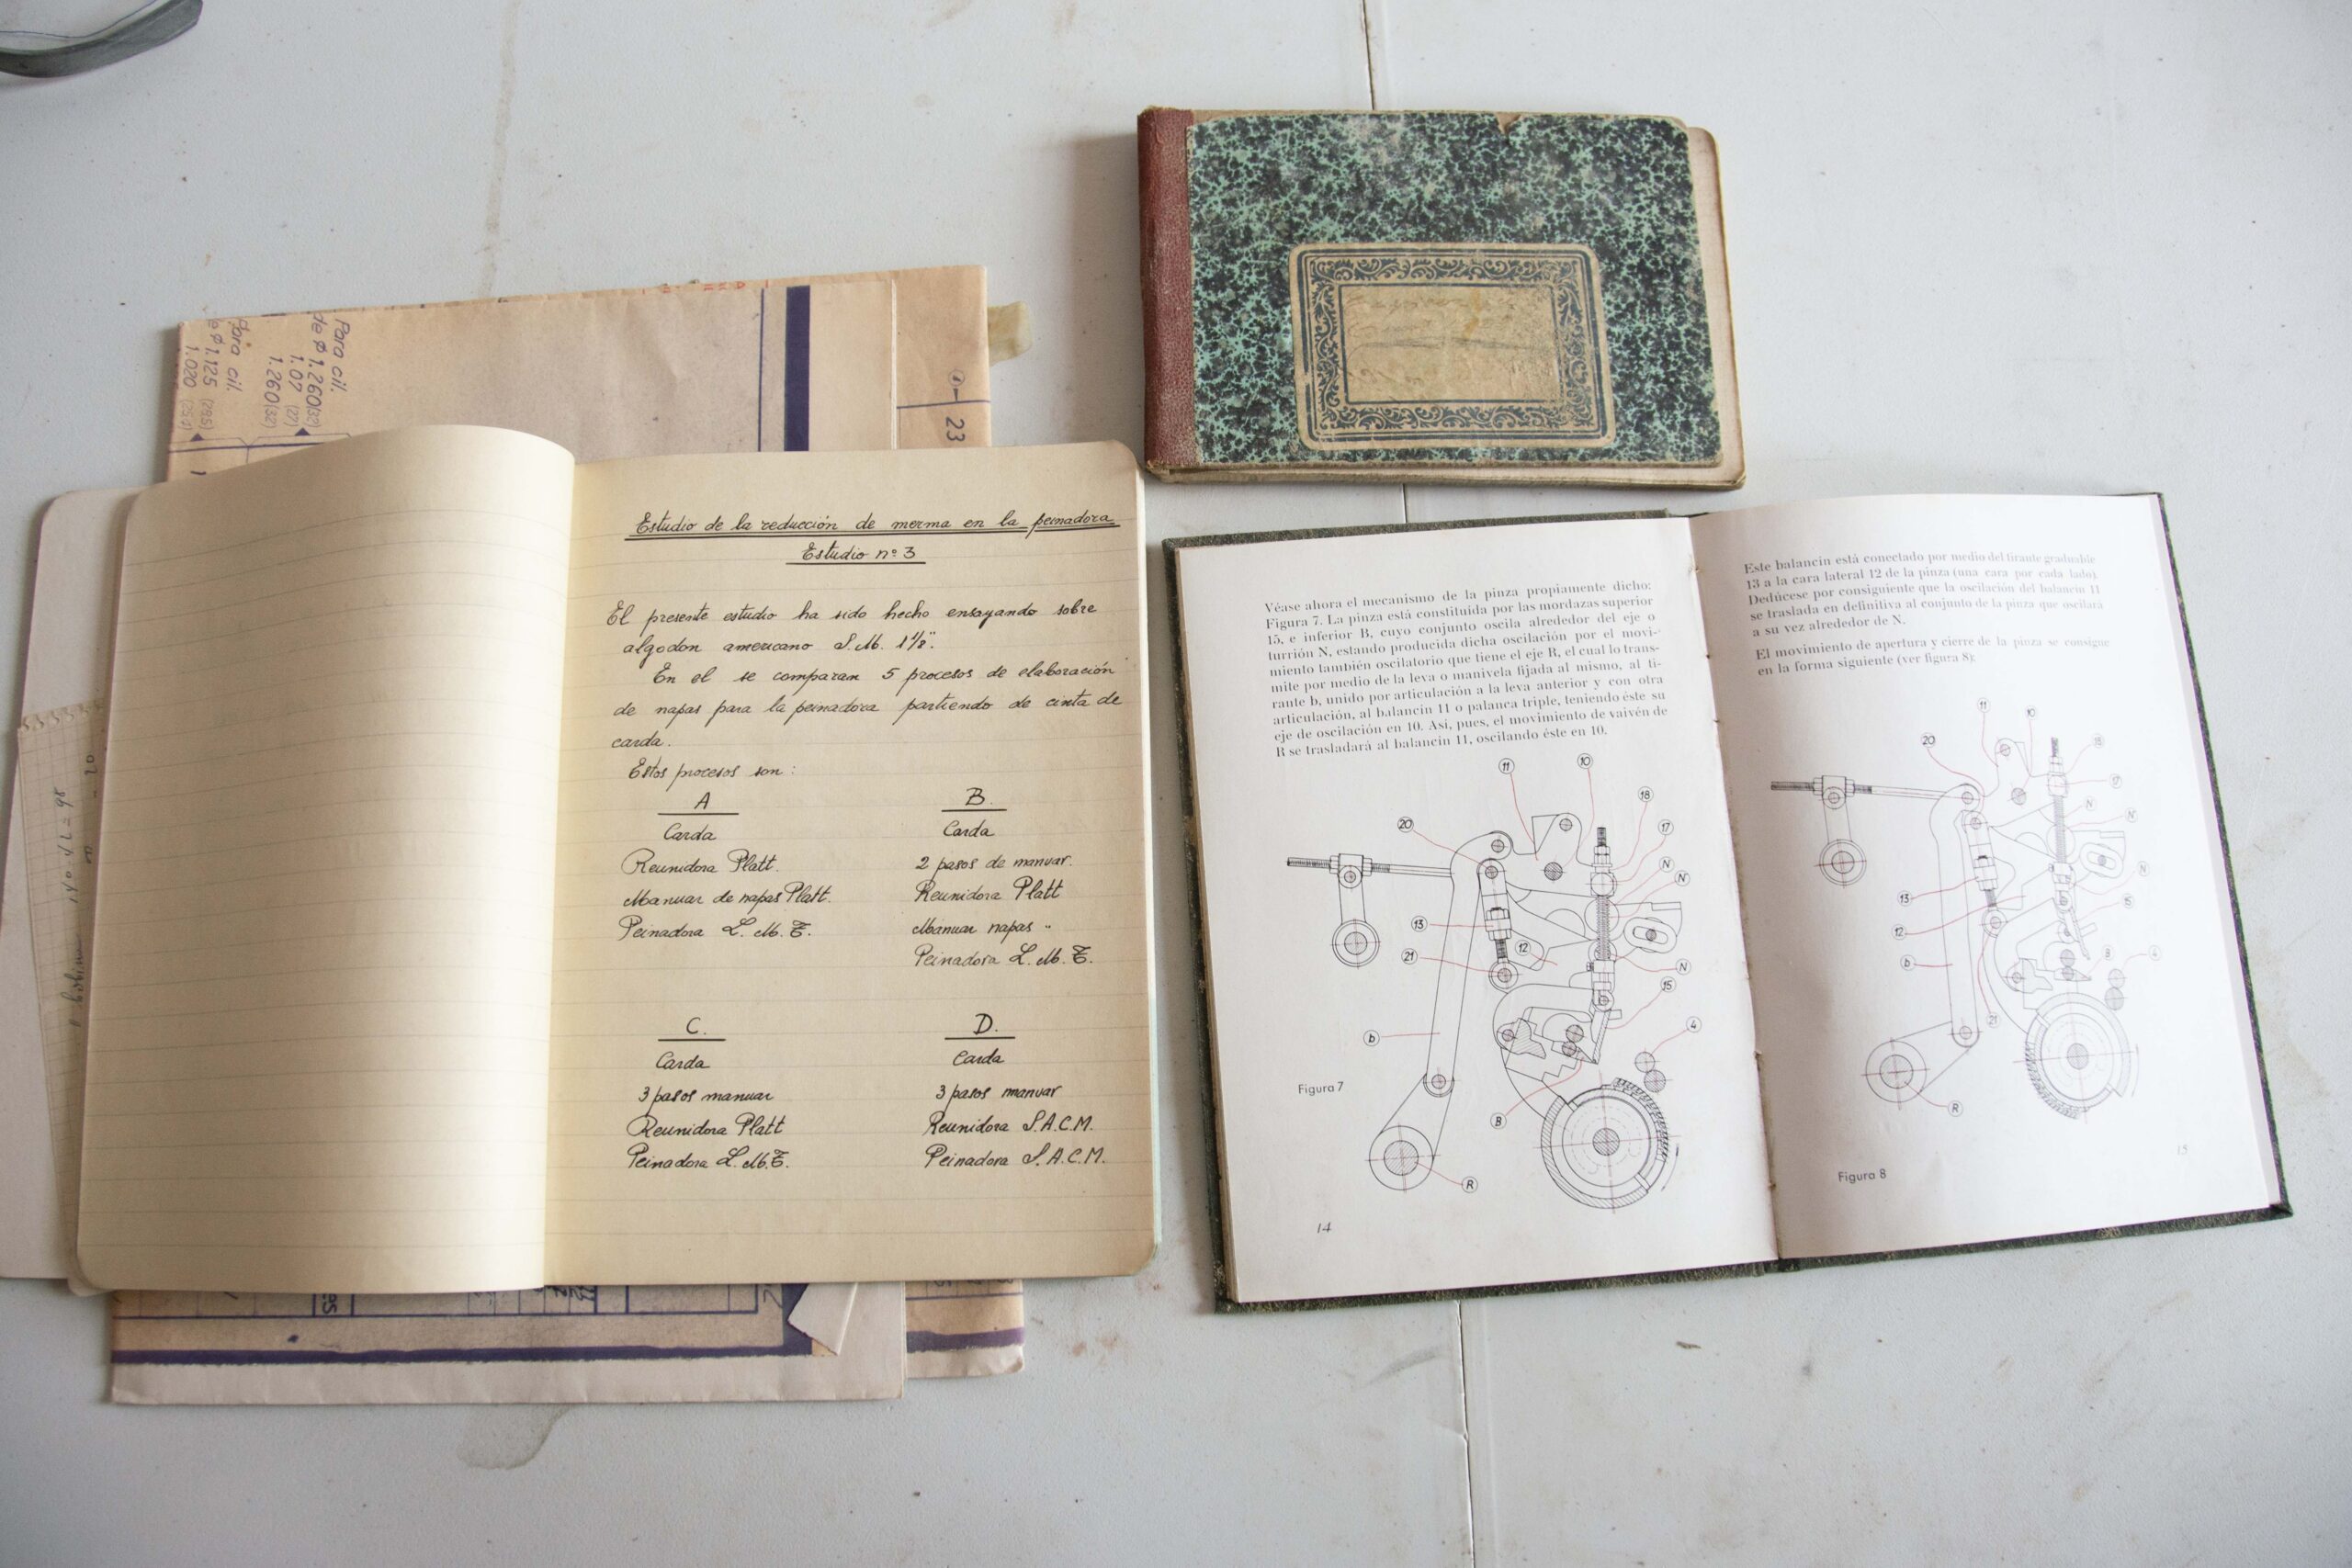 Para cil.
de ø 1.260 (32)
1.07 (27)
1.260 (32)
Para cil.
e ø 1.125 (28,5)
1.020 (25,4)
1
23
Estudio de la reducción de merma en la peinadora
Estudio nº 3
El presente estudio ha sido hecho ensayando sobre
algodon americano S.M. 1 1/8".
En el se comparan 5 procesos de elaboración
de napas para la peinadora partiendo de cinta de
carda.
Estos procesos son:
A
Carda
Reunidora Platt.
Manuar de napas Platt.
Peinadora L. M. T.
B.
Carda
2 pasos de manuar.
Reunidora Platt
Manuar napas "
Peinadora L. M. T.
C.
Carda
3 pasos manuar
Reunidora Platt
Peinadora L. M. T.
D.
Carda
3 pasos manuar
Reunidora S.A.C.M.
Peinadora S.A.C.M.
Véase ahora el mecanismo de la pinza propiamente dicho:
Figura 7. La pinza está constituída por las mordazas superior
15, e inferior B, cuyo conjunto oscila alrededor del eje o
turrión N, estando producida dicha oscilación por el movi-
miento también oscilatorio que tiene el eje R, el cual lo trans-
mite por medio de la leva o manivela fijada al mismo, al ti-
rante b, unido por articulación a la leva anterior y con otra
articulación, al balancín 11 o palanca triple, teniendo éste su
eje de oscilación en 10. Así, pues, el movimiento de vaivén de
R se trasladará al balancín 11, oscilando éste en 10.
11
10
18
20
17
N
N
13
12
21
N
15
b
4
B
R
Figura 7
14
Este balancín está conectado por medio del tirante graduable
13 a la cara lateral 12 de la pinza (una cara por cada lado).
Dedúcese por consiguiente que la oscilación del balancín 11
se traslada en definitiva al conjunto de la pinza que oscilará
a su vez alrededor de N.
El movimiento de apertura y cierre de la pinza se consigue
en la forma siguiente (ver figura 8):
11
10
20
18
17
N
N
N
13
15
12
b
8
4
21
R
Figura 8
15